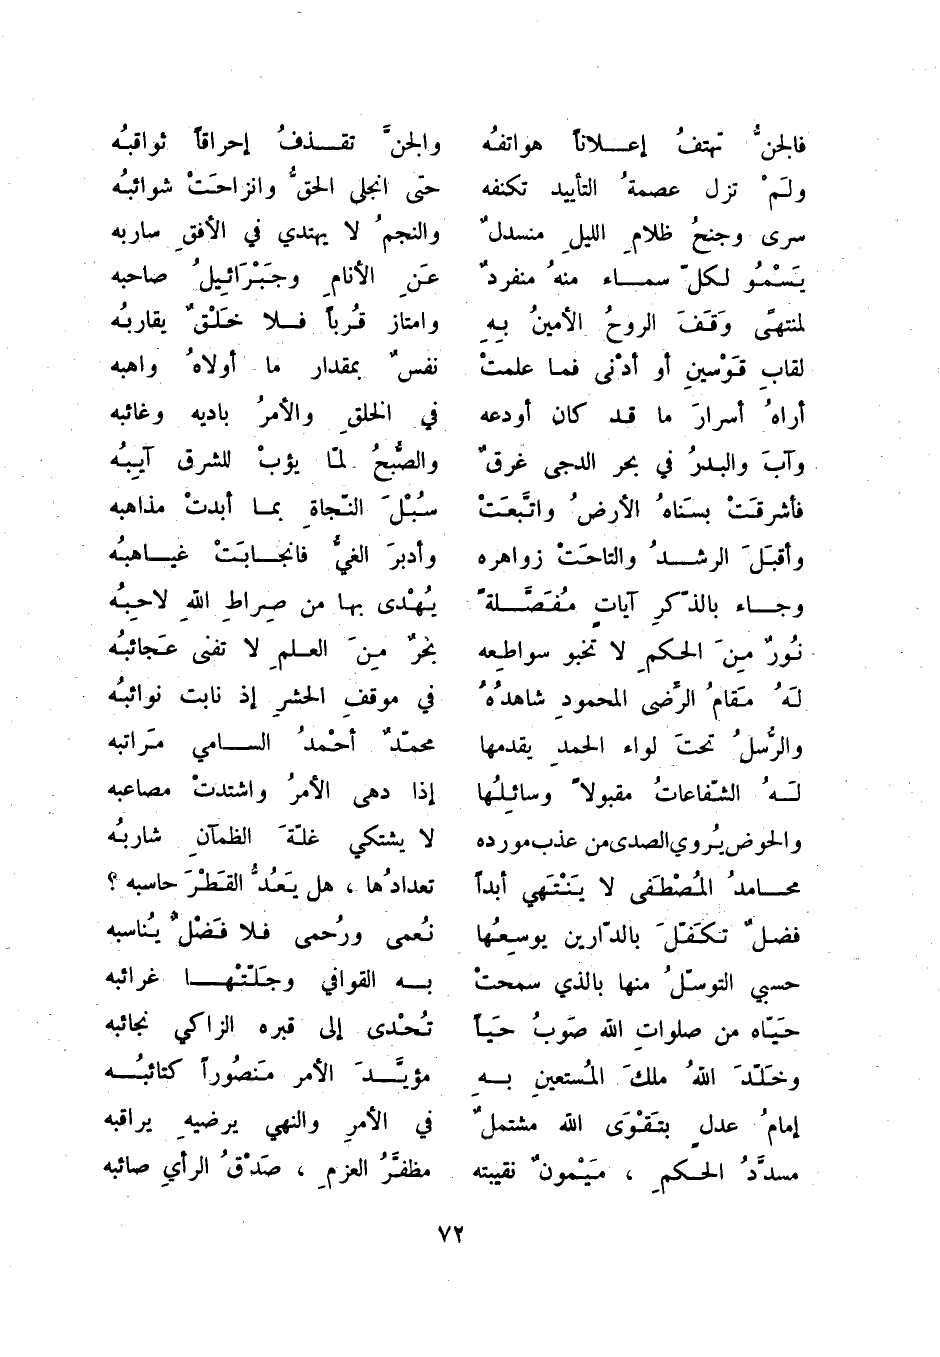 فالجنُّ تهتفُ إعلاناً هواتفُه والجنَّ تقذفُ إحراقاً ثواقبُه
ولَمْ تزل عصمةُ التأييد تكنفه حتى انجلى الحقُّ وانزاحَتْ شوائبُه
سرى وجنحُ ظلامِ الليلِ منسدلٌ والنجمُ لا يهتدي في الأفقِ ساربه
يَسْمُو لكلّ سماء منهُ منفردٌ عَنِ الأنامِ وجَبْرَائيلُ صاحبه
لمنتهىً وَقَفَ الروحُ الأمينُ بِهِ وامتاز قُرباً فلا خَلْقٌ يقاربُه
لقابِ قَوْسينِ أو أدْنى فما علمتْ نفسٌ بمقدار ما أولاهُ واهبه
أراهُ أسرارَ ما قد كان أودعه في الخلقِ والأمرُ باديه وغائبه
وآبَ والبدرُ في بحر الدجى غرقٌ والصُّبحُ لمّا يؤبْ للشرق آيبُه
فأشرقَتْ بسَنَاهُ الأرضُ واتَّبعَتْ سُبْلَ النّجاةِ بما أبدتْ مذاهبه
وأقبَلَ الرشدُ والتاحَتْ زواهره وأدبرَ الغيُّ فانجابَتْ غياهبُه
وجاء بالذّكرِ آياتٍ مُفَصَّلةً يُهْدى بها من صِراطِ اللهِ لاحِبُه
نُورٌ مِنَ الحكمِ لا تخبو سواطعه بحْرٌ مِنَ العلمِ لا تفنى عَجائبُه
لَهُ مَقامُ الرِّضى المحمودِ شاهدُهُ في موقفِ الحشرِ إذ نابت نوائبُه
والرُّسلُ تحتَ لواء الحمدِ يقدمها محمّدٌ أحْمدُ السامي مَراتبه
لَهُ الشّفاعاتُ مقبولاً وسائلُها إذا دهى الأمرُ واشتدتْ مصاعبه
والحوض يُروي الصدى من عذب مورده لا يشتكي غلّةَ الظمآنِ شاربُه
محامدُ المُصْطفى لا يَنْتَهي أبداً تعدادُها ، هل يَعُدُّ القَطْرَ حاسبه ؟
فضلٌ تكفّلَ بالدّارين يوسعُها نُعمى ورُحمى فلا فَضْلٌ يُناسبه
حسبي التوسّلُ منها بالذي سمحتْ به القوافي وجَلّتْها غرائبه
حَيّاه من صلواتِ الله صَوبُ حَيَاً تُحْدى إلى قبره الزاكي نجائبه
وخَلّدَ اللهُ ملكَ المُستعينِ بِهِ مؤيَّدَ الأمر مَنصُوراً كتائبُه
إمامُ عدلٍ بتَقْوَى الله مشتملٌ في الأمرِ والنهي يرضيهِ يراقبه
مسدَّدُ الحكمِ ، مَيْمونٌ نقيبته مظفَّرُ العزمِ ، صَدْقُ الرأي صائبه
٧٢